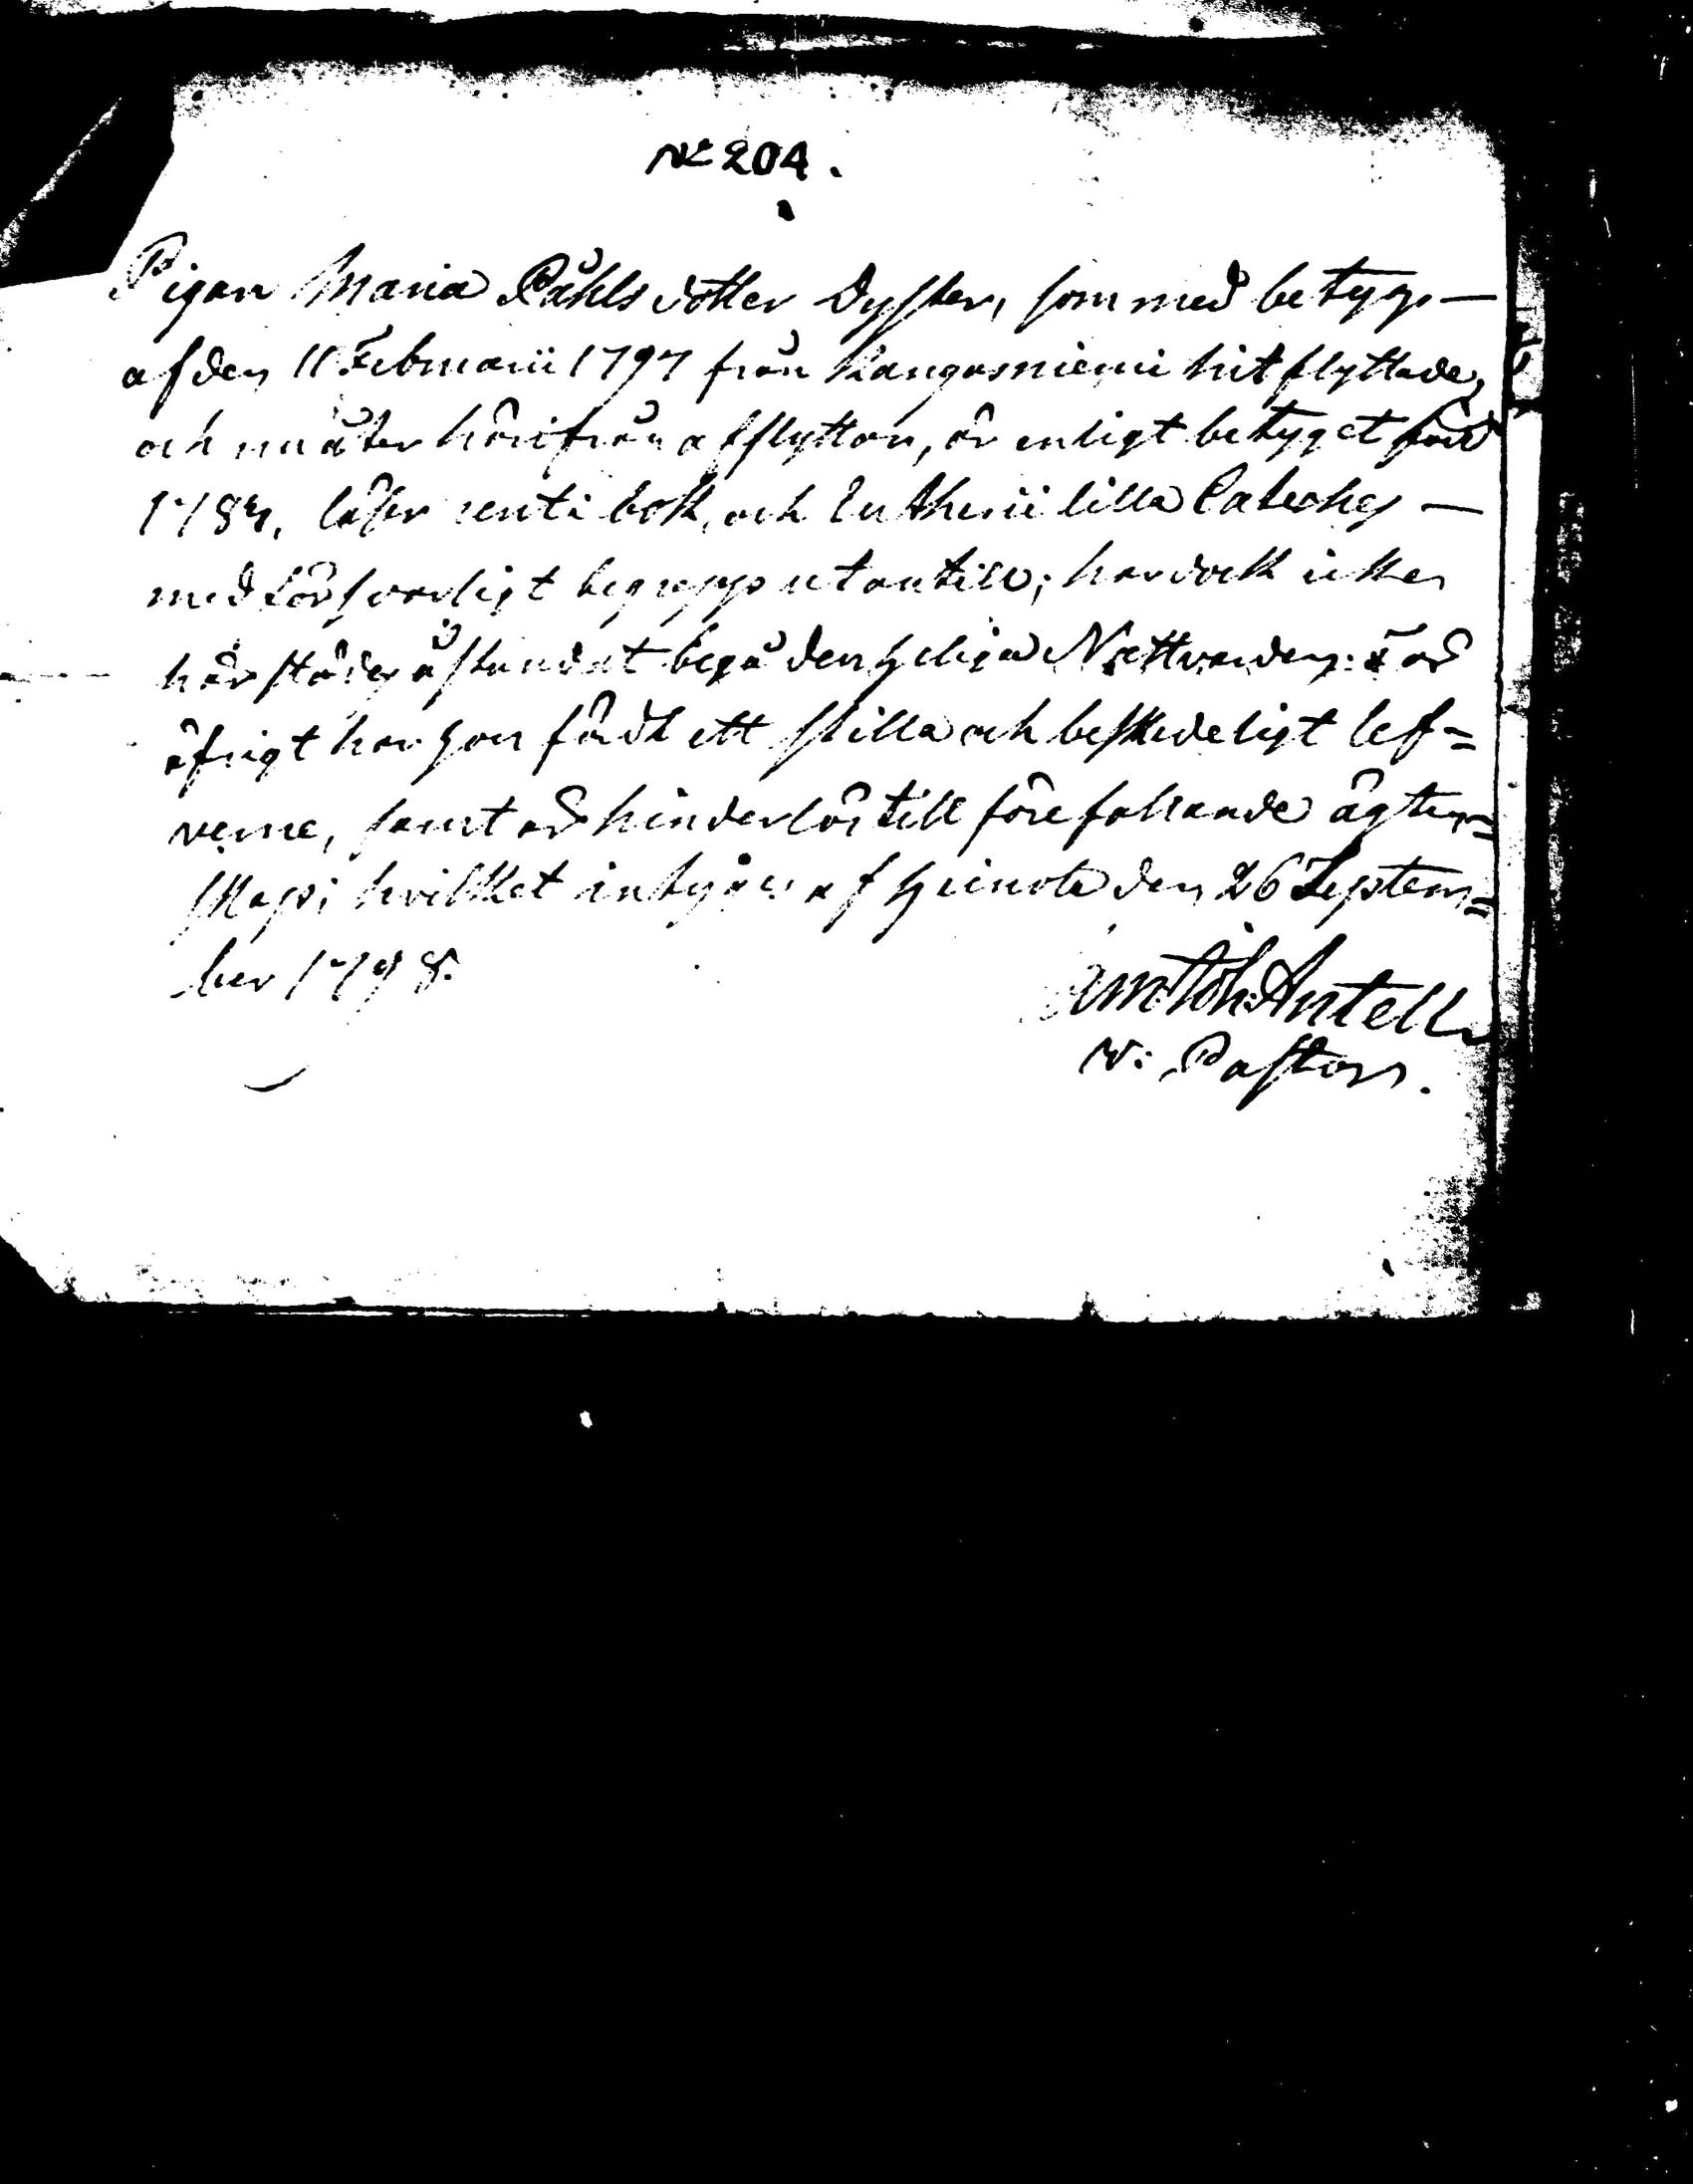 No 204.
Pigan Maria Påhls dotter Dyster, som med betyg
af den 11 Februarii 1797 från Kangasniemi hit flyttade,
och nu åter härifrån afflyttar, är enligt betyget född
1784, läser rent i bok, och Lutherii lilla Cateches
med försvarligt begrepp utantill; har dock icke
härstädes åstundat begå den Heliga Nattvarden: För
öfrigt har Hon fördt ett stilla och beskedeligt lef=
verne, samt är hinderlös till förefallande ägten=
skap; hvilket intygas af Hirvola den 26 Septem=
ber 1798.
Antell
V: Pastor.